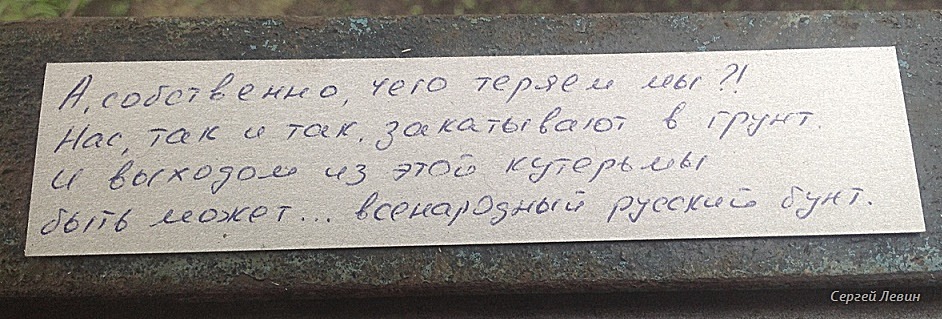 А, собственно, чего теряем мы?!
Нас, так и так, закатывают в грунт.
И выходом из этой кутерьмы
быть может... всенародный русский бунт.
Сергей Левин